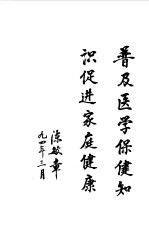 普及医学保健知
识促进家庭健康
陈敏章
九四年三月